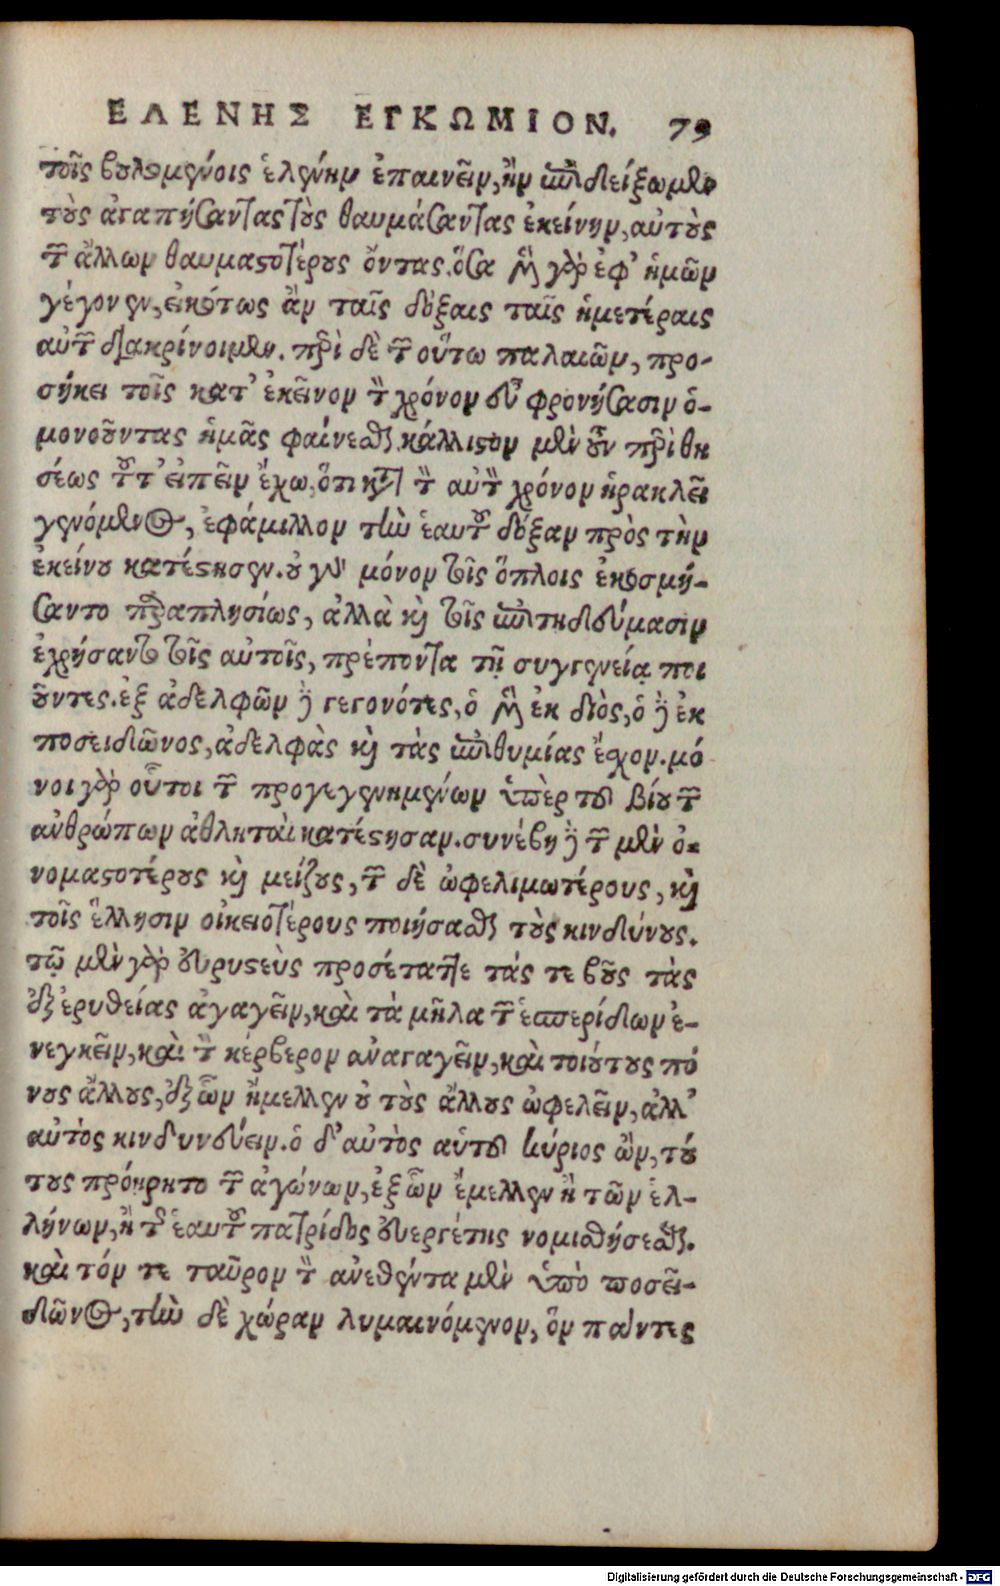 ΕΛΕΝΗΣ ΕΓΚΩΜΙΟΝ. 79
τοῖς βουλομένοις ἑλένην ἐπαινεῖν, ἢν ἐπιδείξωμεν
τοὺς ἀγαπήσαντας τοὺς θαυμάσαντας ἐκείνην, αὐτοὺς
τῶν ἄλλων θαυμαστοτέρους ὄντας. ὅσα μὲν γὰρ ἐφ' ἡμῶν
γέγονεν, εἰκότως ἂν ταῖς δόξαις ταῖς ἡμετέραις
αὐτῶν διακρίνοιμεν. περὶ δὲ τῶν οὕτω παλαιῶν, προ-
σήκει τοῖς κατ' ἐκεῖνον τὸν χρόνον εὖ φρονήσασιν ὁ-
μονοοῦντας ἡμᾶς φαίνεσθαι. κάλλιστον μὲν οὖν περὶ θη
σέως τοῦτ' εἰπεῖν ἔχω, ὅτι κατὰ τὸν αὐτὸν χρόνον ἡρακλεῖ
γενόμενος, ἐφάμιλλον τὴν ἑαυτοῦ δόξαν πρὸς τὴν
ἐκείνου κατέστησεν. οὐ γὰρ μόνον τοῖς ὅπλοις ἐκοσμή-
σαντο παραπλησίως, ἀλλὰ καὶ τοῖς ἐπιτηδεύμασιν
ἐχρήσαντο τοῖς αὐτοῖς, πρέποντα τῇ συγγενείᾳ ποι
οῦντες. ἐξ ἀδελφῶν γὰρ γεγονότες, ὁ μὲν ἐκ διὸς, ὁ δὲ ἐκ
ποσειδῶνος, ἀδελφὰς καὶ τὰς ἐπιθυμίας ἔσχον. μό
νοι γὰρ οὗτοι τῶν προγεγενημένων ὑπὲρ τοῦ βίου τῶν
ἀνθρώπων ἀθληταὶ κατέστησαν. συνέβη δὲ τὸν μὲν ὀ-
νομαστοτέρους καὶ μείζους, τὸν δὲ ὠφελιμωτέρους, καὶ
τοῖς ἕλλησιν οἰκειοτέρους ποιήσασθαι τοὺς κινδύνους.
τῷ μὲν γὰρ εὐρυσεὺς προσέταττε τάς τε βοῦς τὰς
ἐξ ἐρυθείας ἀγαγεῖν, καὶ τὰ μῆλα τῶν ἑσπερίδων ἐ-
νεγκεῖν, καὶ τὸν κέρβερον ἀναγαγεῖν, καὶ τοιούτους πό
νους ἄλλους, ἐξ ὧν ἤμελλεν οὐ τοὺς ἄλλους ὠφελεῖν, ἀλλ'
αὐτὸς κινδυνεύειν. ὁ δ' αὐτὸς αὑτοῦ κύριος ὢν, τού
τους πρόῃρητο τῶν ἀγώνων, ἐξ ὧν ἔμελλεν ἢ τῶν ἑλ-
λήνων, ἢ τῆς ἑαυτοῦ πατρίδος εὐεργέτης νομισθήσεσθαι.
καὶ τόν τε ταῦρον τὸν ἀνεθέντα μὲν ὑπὸ ποσει-
δῶνος, τὴν δὲ χώραν λυμαινόμενον, ὃν πάντες
Digitalisierung gefördert durch die Deutsche Forschungsgemeinschaft - DFG